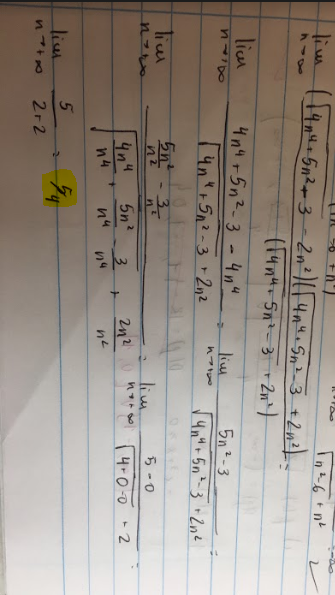 √n²-6 + n²
2
lim n→∞ (√4n⁴+5n²+3 - 2n²)(√4n⁴+5n²-3 + 2n²) =
(√4n⁴+5n²-3 + 2n²)
lim n→∞ 4n⁴+5n²-3-4n⁴ / √4n⁴+5n²-3 + 2n² = lim n→∞ 5n²-3 / √4n⁴+5n²-3 + 2n² =
lim n→+∞ 5n²/n² - 3/n² / √4n⁴/n⁴ + 5n²/n⁴ - 3/n⁴ + 2n²/n² = lim n→+∞ 5-0 / √4+0-0 + 2 =
lim n→+∞ 5 / 2+2 = 5/4